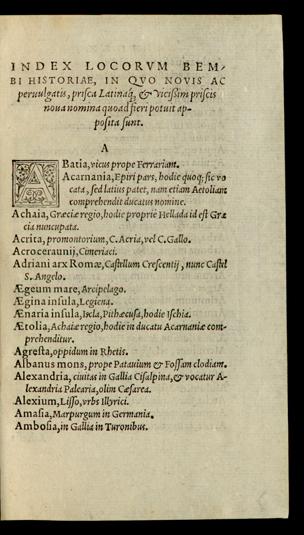 INDEX LOCORVM BEM-
BI HISTORIAE, IN QVO NOVIS AC
peruulgatis, prisca Latinaq́;, & vicißim priscis
noua nomina quoad fieri potuit ap-
posita sunt.
A
ABatia, vicus prope Ferrariam.
Acarnania, Epiri pars, hodie quoq; sic vo
cata, sed latius patet, nam etiam Aetoliam
comprehendit ducatus nomine.
Achaia, Græciæ regio, hodie propriè Hellada id est Græ
cia nuncupata.
Acrita, promontorium, C. Acria, vel C. Gallo.
Acroceraunij, Cimeriaci.
Adriani arx Romæ, Castellum Crescentij, nunc Castel
S. Angelo.
Ægeum mare, Arcipelago.
Ægina insula, Legiena.
Ænaria insula, Iscla, Pithæcusa, hodie Ischia.
Ætolia, Achaiæ regio, hodie in ducatu Acarnaniæ com-
prehenditur.
Agresta, oppidum in Rhetis.
Albanus mons, prope Patauium & Fossam clodiam.
Alexandria, ciuitas in Gallia Cisalpina, & vocatur A-
lexandria Palearia, olim Cæsarea.
Alexium, Lisso, vrbs Illyrici.
Amasia, Marpurgum in Germania.
Ambosia, in Gallia in Turonibus.